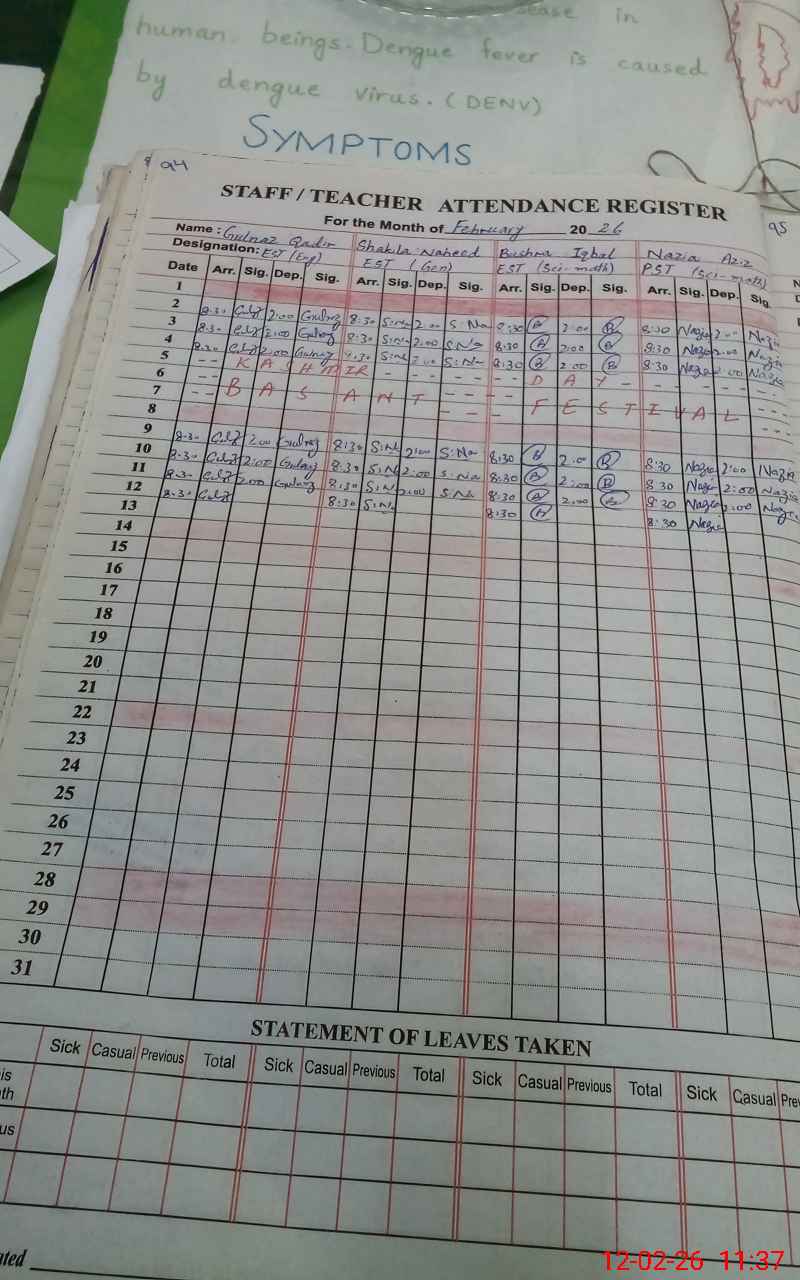 sease in
human beings. Dengue fever is caused
by dengue virus. (DENV)
SYMPTOMS
94
STAFF / TEACHER ATTENDANCE REGISTER
For the Month of February 2026
95
Name : Gulnaz Qadir Shakila Naheed Bushra Iqbal Nazia Aziz
Designation: EST (Eng) EST (Gen) EST (Sci-math) PST (Sci-math)
Date Arr. Sig. Dep. Sig. Arr. Sig. Dep. Sig. Arr. Sig. Dep. Sig. Arr. Sig. Dep. Sig.
1
2
3 8:30 Gulz 2:00 Gulnaz 8:30 S:Na 2:00 S:Na 8:30 B 2:00 B 8:30 Nazia 2:00 Nazia
4 8:30 Gulz 2:00 Gulnaz 8:30 S:Na 2:00 S:Na 8:30 B 2:00 B 8:30 Nazia 2:00 Nazia
5 8:30 Gulz 2:00 Gulnaz 8:30 S:Na 2:00 S:Na 8:30 B 2:00 B 8:30 Nazia 2:00 Nazia
6 - - KASHMIR - - - - - - DAY - - - - -
7 - - BASANT - - - - FESTIVAL - -
8
9
10 8:30 Gulz 2:00 Gulnaz 8:30 S:Na 2:00 S:Na 8:30 B 2:00 B 8:30 Nazia 2:00 Nazia
11 8:30 Gulz 2:00 Gulnaz 8:30 S:Na 2:00 S:Na 8:30 B 2:00 B 8:30 Nazia 2:00 Nazia
12 8:30 Gulz 2:00 Gulnaz 8:30 S:Na 2:00 S:Na 8:30 B 2:00 B 8:30 Nazia 2:00 Nazia
13 8:30 Gulz 8:30 S:Na 8:30 B 8:30 Nazia
14
15
16
17
18
19
20
21
22
23
24
25
26
27
28
29
30
31
STATEMENT OF LEAVES TAKEN
Sick Casual Previous Total Sick Casual Previous Total Sick Casual Previous Total Sick Casual Prev
is
th
us
ated
12-02-26 11:37